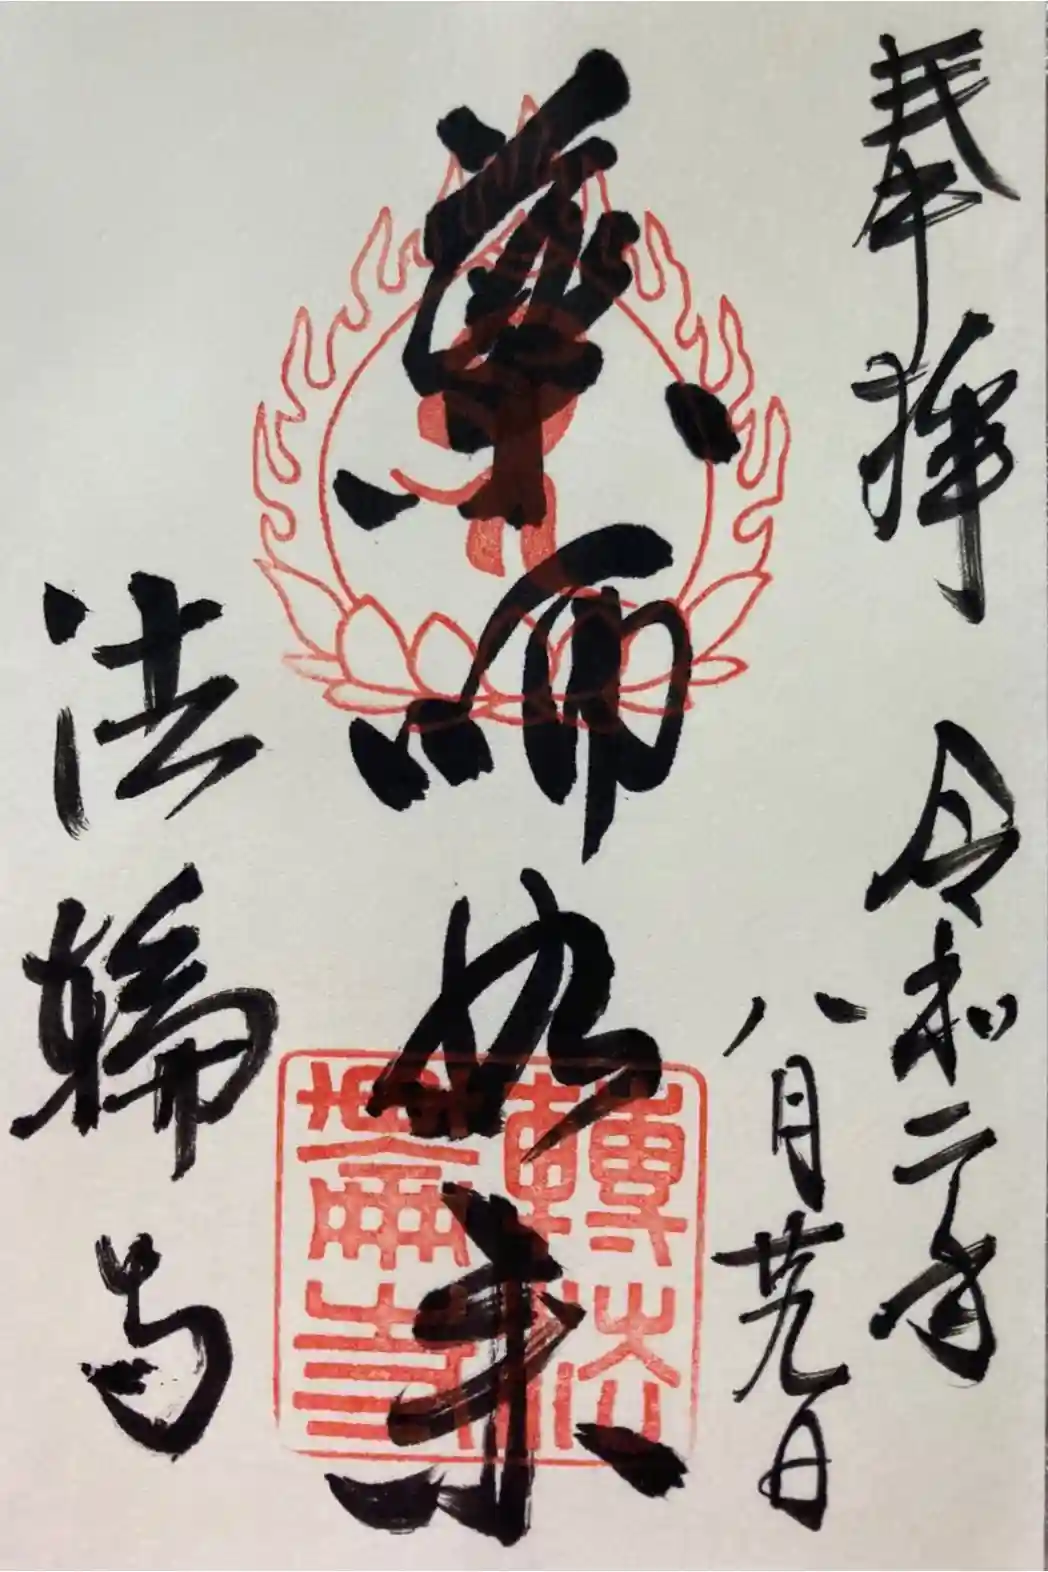 奉拝 令和二年
八月廿九日
薬師如来
法輪寺
轉法
輪寺